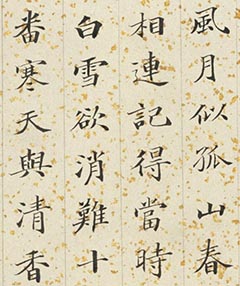 風月似孤山春
相連記得當時
白雪欲消難十
番寒天與清香